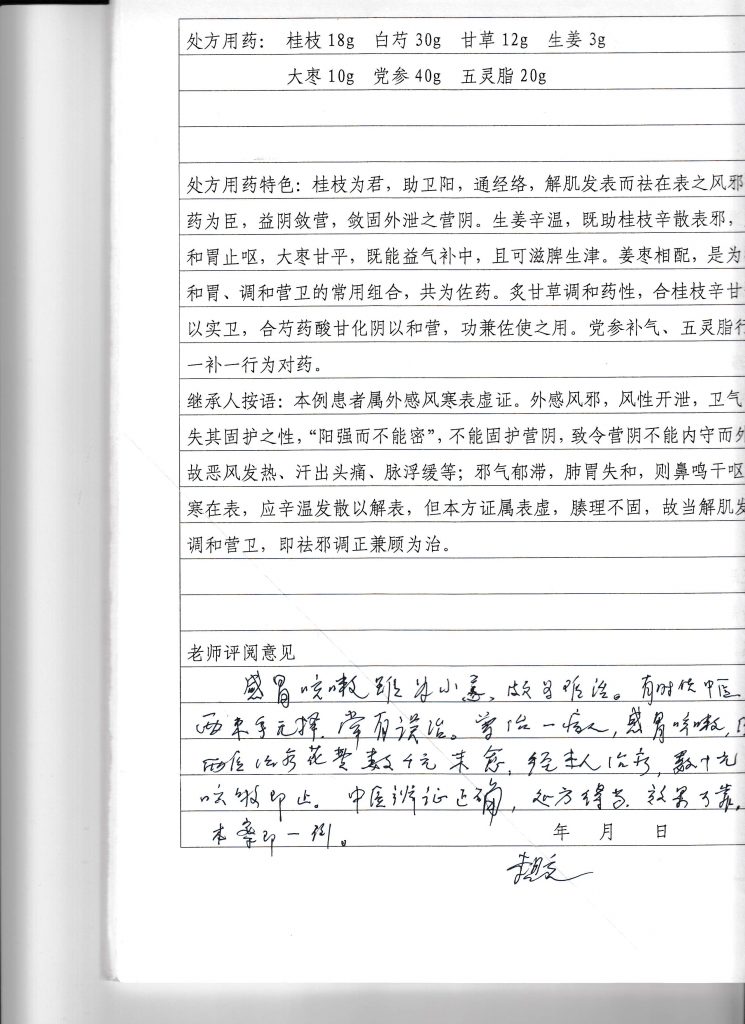 处方用药： 桂枝 18g 白芍 30g 甘草 12g 生姜 3g
大枣 10g 党参 40g 五灵脂 20g
处方用药特色：桂枝为君，助卫阳，通经络，解肌发表而祛在表之风邪
药为臣，益阴敛营，敛固外泄之营阴。生姜辛温，既助桂枝辛散表邪，
和胃止呕，大枣甘平，既能益气补中，且可滋脾生津。姜枣相配，是为
和胃、调和营卫的常用组合，共为佐药。炙甘草调和药性，合桂枝辛甘
以实卫，合芍药酸甘化阴以和营，功兼佐使之用。党参补气、五灵脂行
一补一行为对药。
继承人按语：本例患者属外感风寒表虚证。外感风邪，风性开泄，卫气
失其固护之性，“阳强而不能密”，不能固护营阴，致令营阴不能内守而外
故恶风发热、汗出头痛、脉浮缓等；邪气郁滞，肺胃失和，则鼻鸣干呕
寒在表，应辛温发散以解表，但本方证属表虚，腠理不固，故当解肌发
调和营卫，即祛邪调正兼顾为治。
老师评阅意见
感冒咳嗽虽小恙，难治。有时使中医
西束手无择，常有误治。曾治一病人，感冒咳嗽，
西医治疗花费数千元未愈，经本人治疗，数十元
咳嗽即止。中医辨证正确，处方得当，效果可靠，
本案即一例。 年 月 日